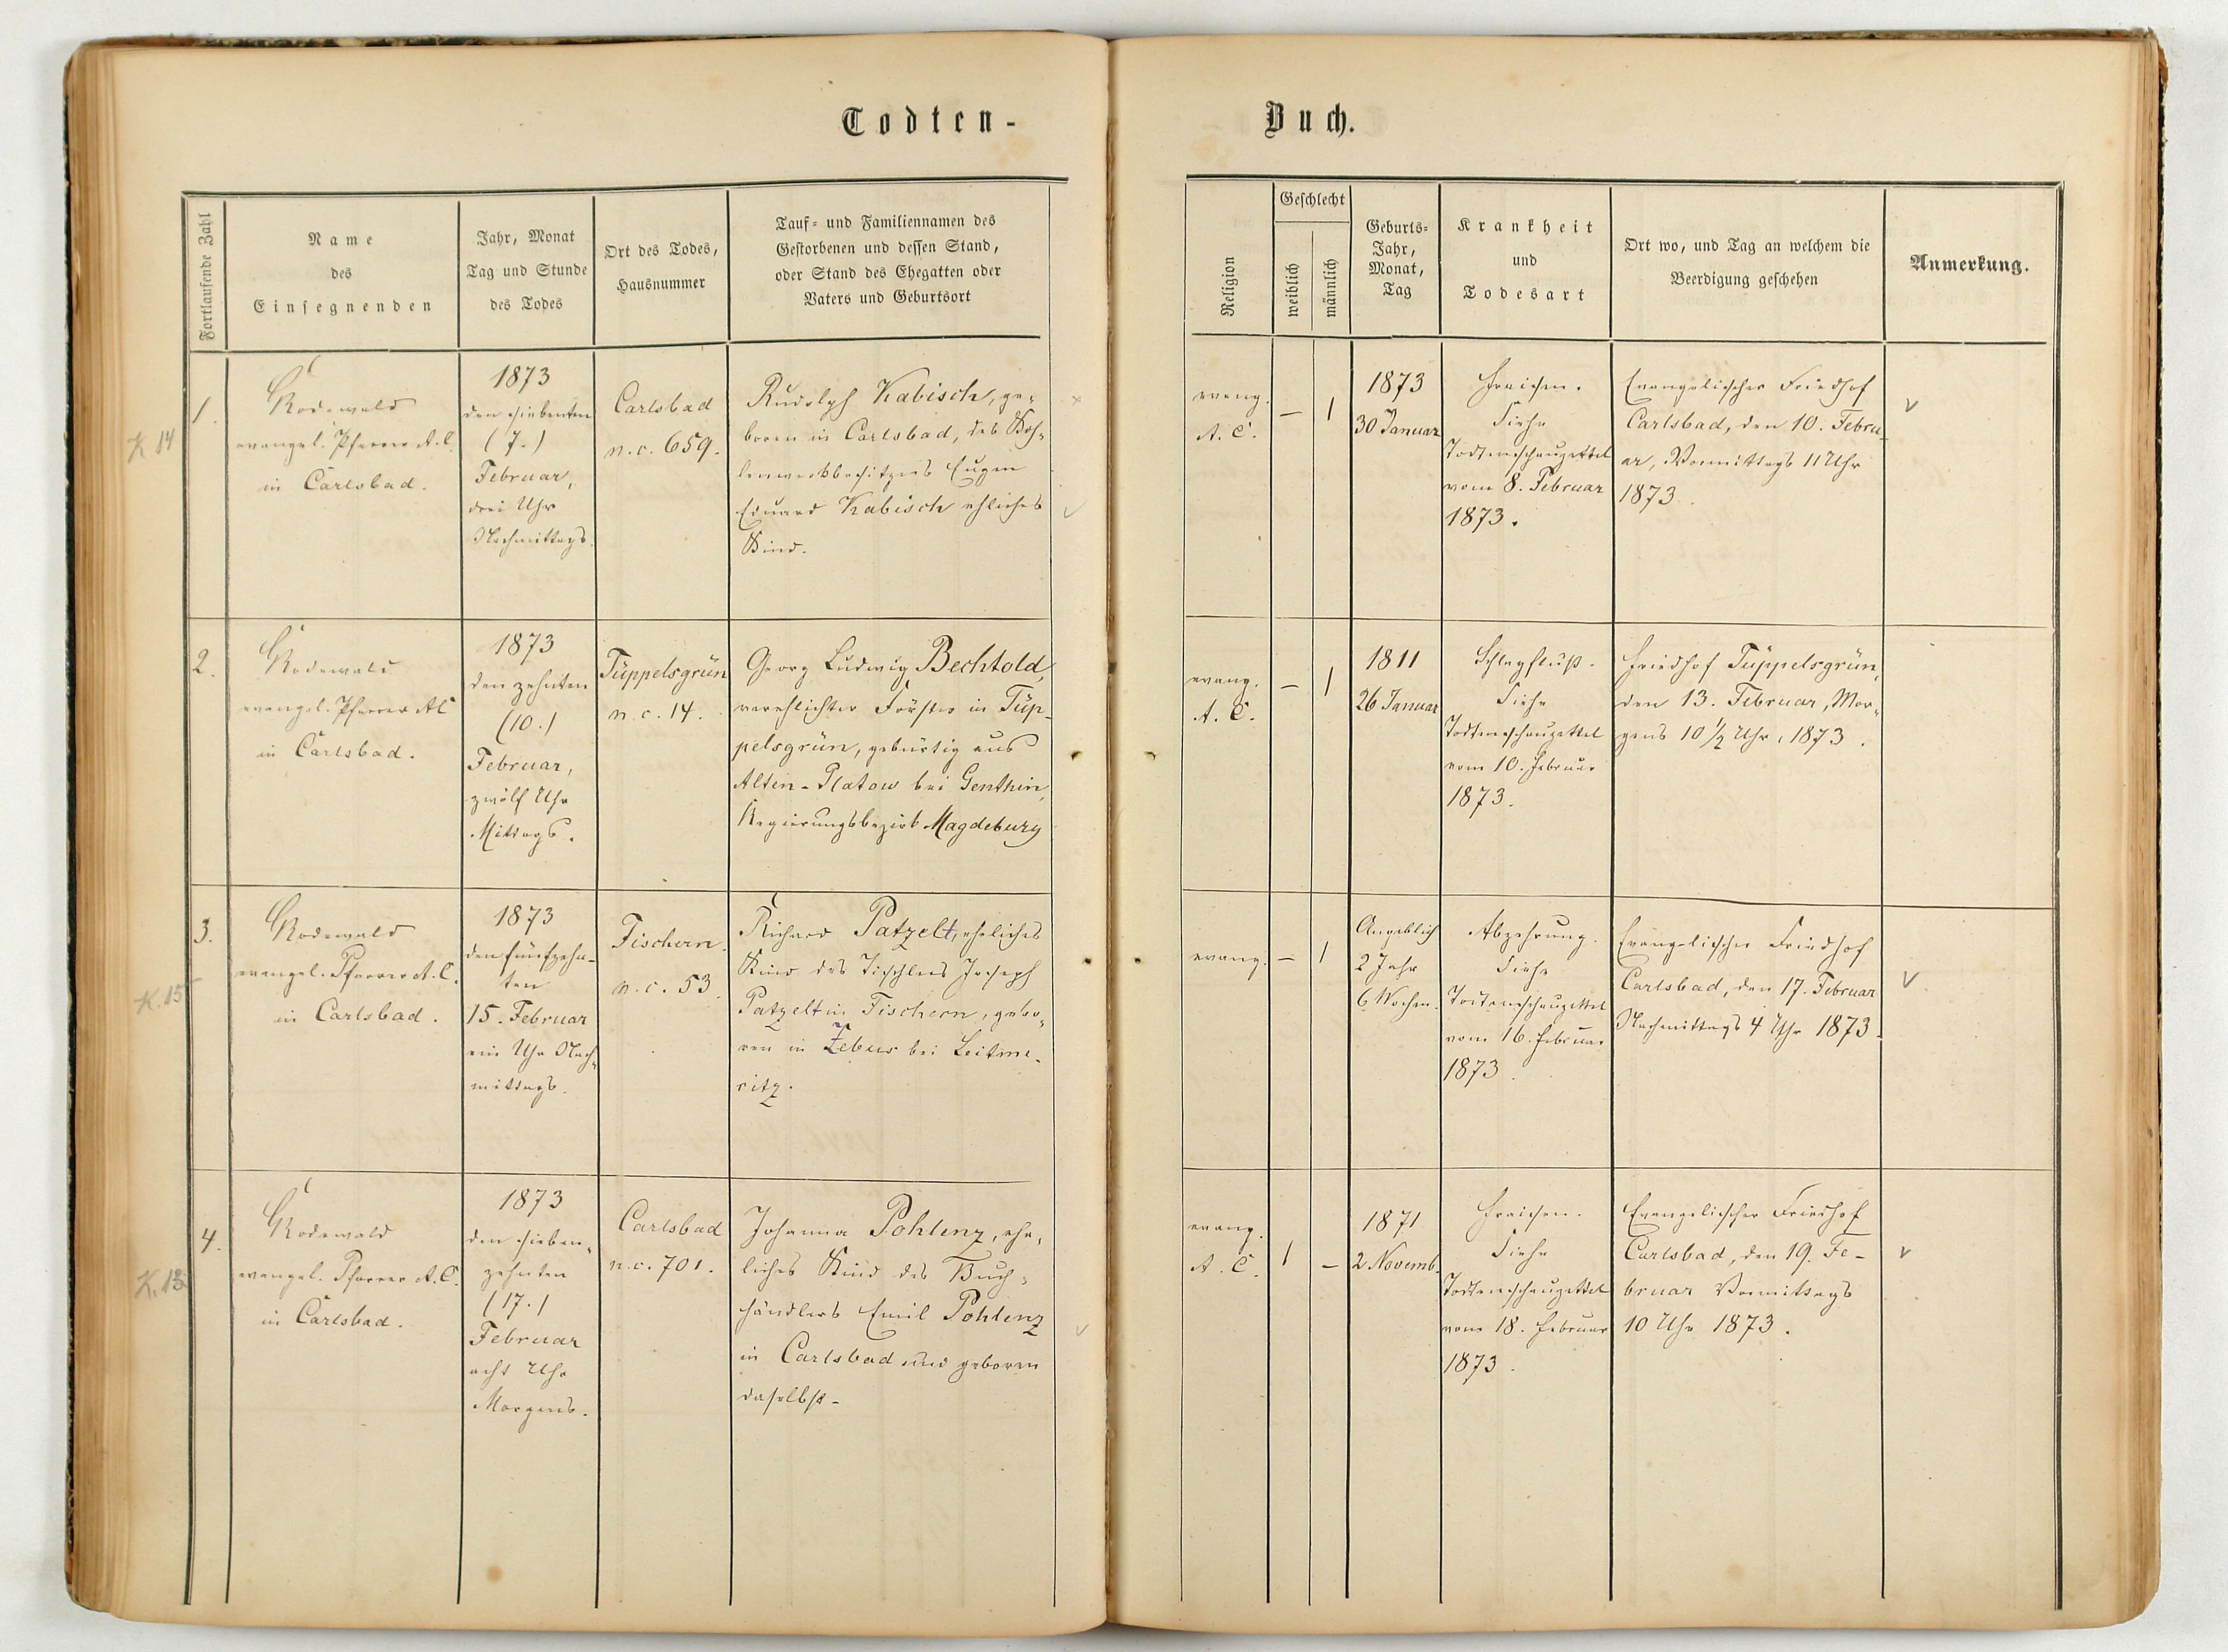 Todten-
Buch.
Fortlaufende Zahl
Name
des
Einsegnenden
Jahr, Monat
Tag und Stunde
des Todes
Ort des Todes,
Hausnummer
Tauf- und Familiennamen des
Gestorbenen und dessen Stand,
oder Stand des Ehegatten oder
Vaters und Geburtsort
Religion
Geschlecht
weiblich
männlich
Geburts-
Jahr,
Monat,
Tag
Krankheit
und
Todesart
Ort wo, und Tag an welchem die
Beerdigung geschehen
Anmerkung.
K 14
1.
Rodewald
evangel. Pfarrer A. C.
in Carlsbad.
1873
den siebenten
(7.)
Februar,
drei Uhr
Nachmittags.
Carlsbad
n. c. 659.
Rudolph Kabisch, ge-
boren in Carlsbad, des Koh-
lenwerkbesitzers Eugen
Eduard Kabisch ehliches
Kind.
evang.
A. C.
—
1
1873
30 Januar
Fraisen.
Siehe
Todtenschauzettel
vom 8. Februar
1873.
Evangelischer Friedhof
Carlsbad, den 10. Febru-
ar, Vormittags 11 Uhr
1873.
2.
Rodewald
evangel. Pfarrer AC
in Carlsbad.
1873
den zehnten
(10.)
Februar,
zwölf Uhr
Mittags.
Tüppelsgrün
n. c. 14.
Georg Ludwig Bechtold,
verehlichter Förster in Tüp-
pelsgrün, gebürtig aus
Alten-Platow bei Genthin,
Regierungsbezirk Magdeburg
evang.
A. C.
—
1
1811
26 Januar
Schlagfluß.
Siehe
Todtenschauzettel
vom 10. Februar
1873.
Friedhof Tüppelsgrün,
den 13. Februar, Mor-
gens 10 1/2 Uhr, 1873.
K. 15
3.
Rodewald
evangel. Pfarrer A. C.
in Carlsbad.
1873
den fünfzehn-
ten
15. Februar
ein Uhr Nach-
mittags.
Fischern.
n. c. 53.
Richard Patzelt, eheliches
Kind des Tischlers Joseph
Patzelt in Fischern, gebo-
ren in Zebus bei Leitme-
ritz.
evang.
—
1
Angeblich
2 Jahr
6 Wochen.
Abzehrung.
Siehe
Todtenschauzettel
vom 16. Februar
1873.
Evangelischer Friedhof
Carlsbad, den 17. Februar
Nachmittags 4 Uhr 1873.
K. 13
4.
Rodewald
evangel. Pfarrer A. C.
in Carlsbad.
1873
den sieben-
zehnten
(17.)
Februar
acht Uhr
Morgens.
Carlsbad
n. c. 701.
Johanna Pohlenz, ehe-
liches Kind des Buch-
händlers Emil Pohlenz
in Carlsbad und geboren
daselbst.
evang.
A. C.
1
—
1871
2 Novemb.
Fraisen.
Siehe
Todtenschauzettel
vom 18. Februar
1873.
Evangelischer Friedhof
Carlsbad, den 19. Fe-
bruar Vormittags
10 Uhr 1873.